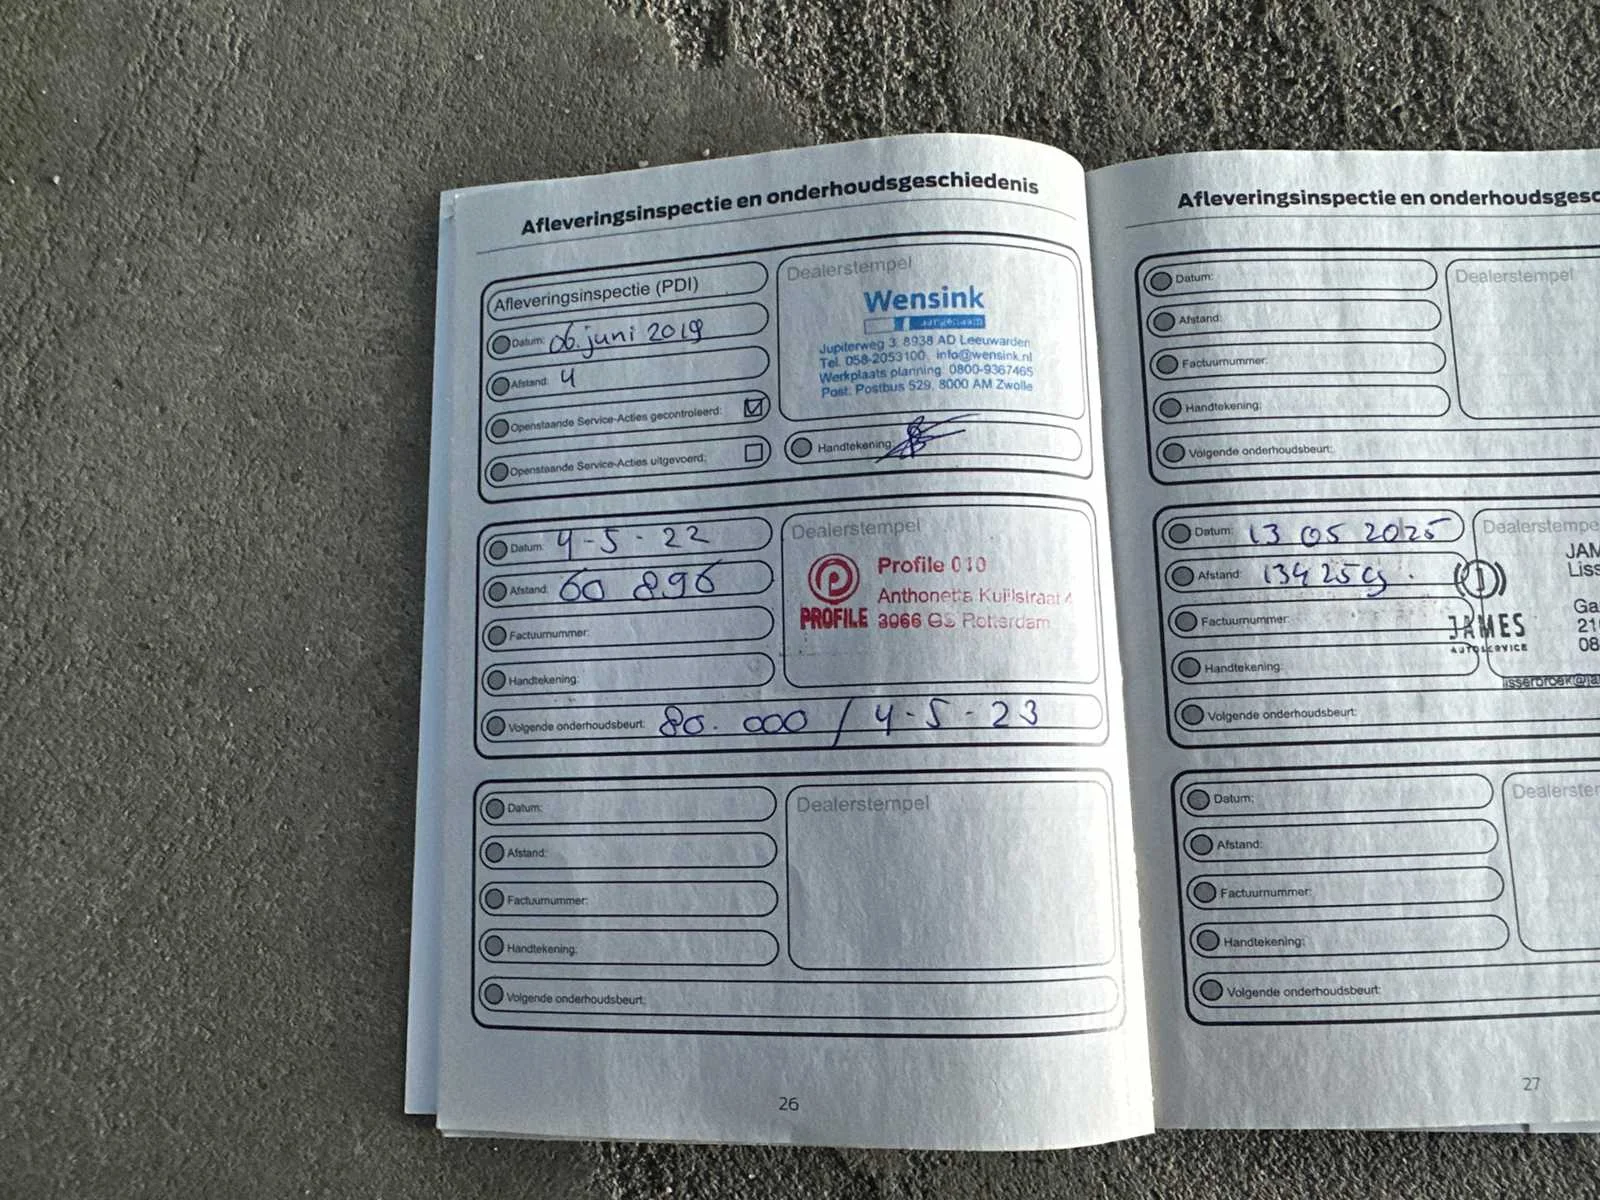 Afleveringsinspectie en onderhoudsgeschiedenis
Afleveringsinspectie (PDI)
Datum: 06 juni 2019
Afstand: 4
Openstaande Service-Acties gecontroleerd:
Openstaande Service-Acties uitgevoerd:
Dealerstempel
Wensink
Jupiterweg 3, 8938 AD Leeuwarden
Tel. 058-2053100, info@wensink.nl
Werkplaats planning: 0800-9367465
Post: Postbus 529, 8000 AM Zwolle
Handtekening:
Datum: 4-5-22
Afstand: 60 896
Factuurnummer:
Handtekening:
Volgende onderhoudsbeurt: 80.000 / 4-5-23
Dealerstempel
PROFILE
Profile 010
3066 GS Rotterdam
Datum:
Afstand:
Factuurnummer:
Handtekening:
Volgende onderhoudsbeurt:
Dealerstempel
26
Afleveringsinspectie en onderhoudsgesc
Datum:
Afstand:
Factuurnummer:
Handtekening:
Volgende onderhoudsbeurt:
Dealerstempel
Datum: 13 05 2025
Afstand:
Factuurnummer:
Handtekening:
Volgende onderhoudsbeurt:
Dealerstempe
JAMES
AUTOSERVICE
JAM
Liss
Ga
21
08
Datum:
Afstand:
Factuurnummer:
Handtekening:
Volgende onderhoudsbeurt:
Dealerster
27